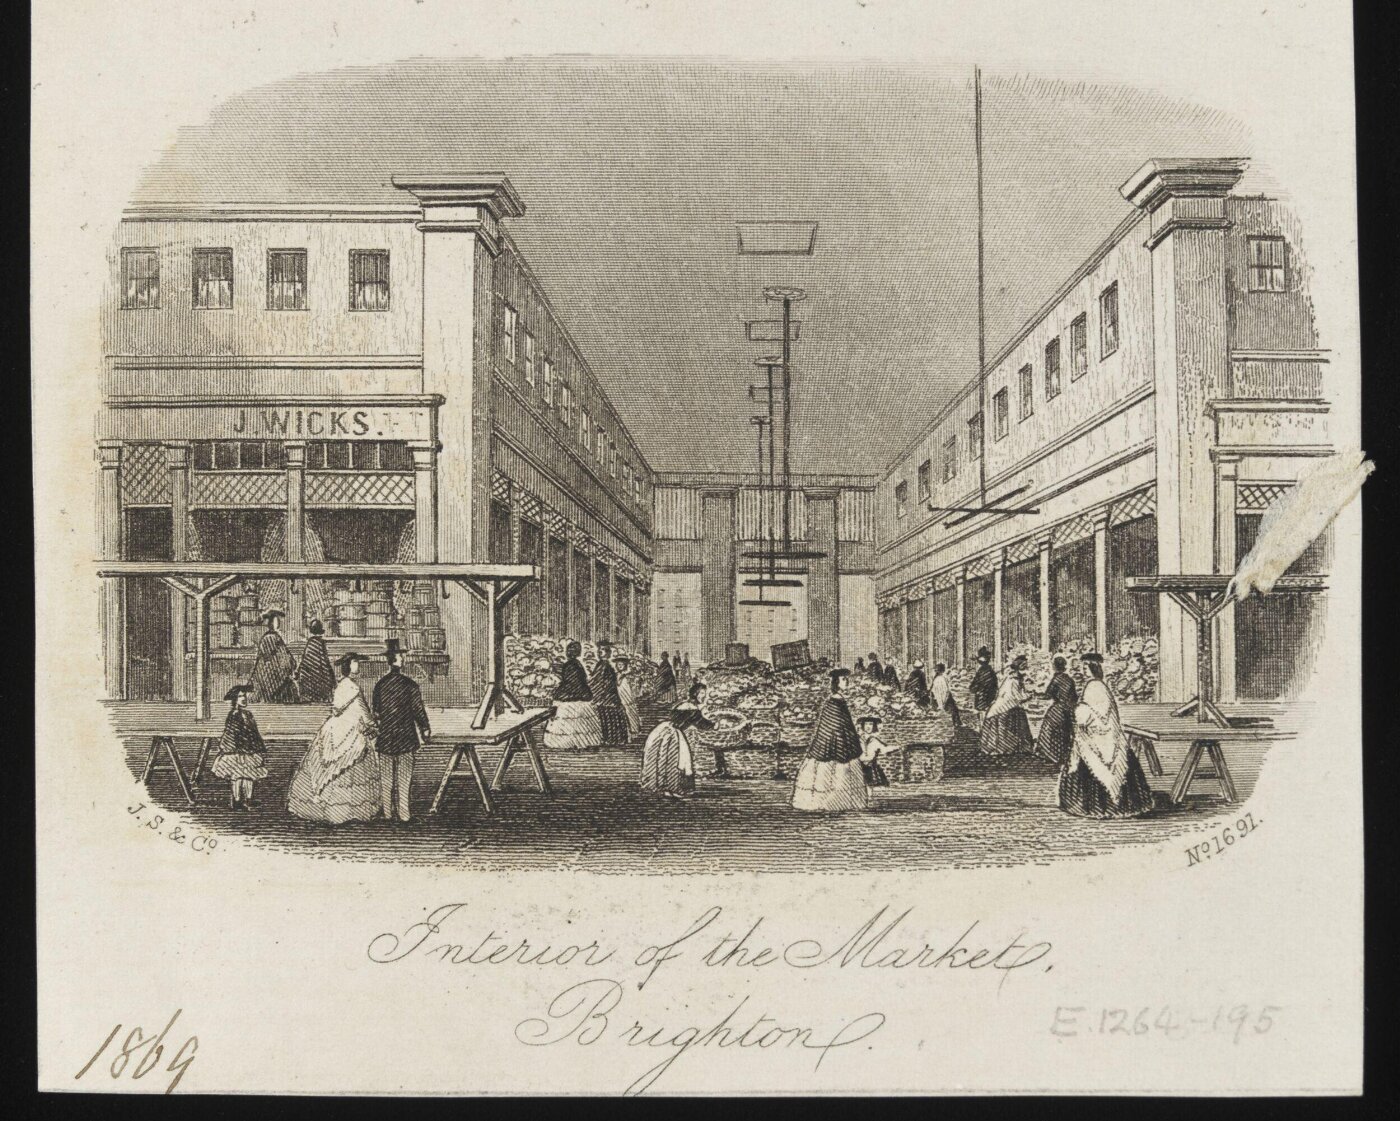 J. WICKS.
J. S. & Co.
No. 1691.
Interior of the Market,
Brighton.
1869
E.1264.-195